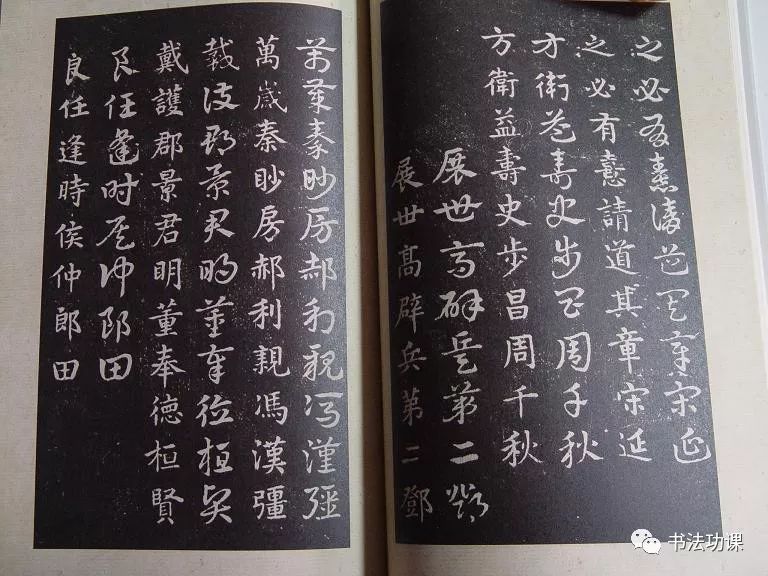 之必有憙請道其章宋延
之必有憙請道其章宋延
方衛益壽史步昌周千秋
方衛益壽史步昌周千秋
展世高辟兵第二鄧
展世高辟兵第二鄧
萬歲秦眇房郝利親馮漢彊
萬歲秦眇房郝利親馮漢彊
戴護郡景君明董奉德桓賢
戴護郡景君明董奉德桓賢
良任逢時侯仲郎田
良任逢時侯仲郎田
书法功课